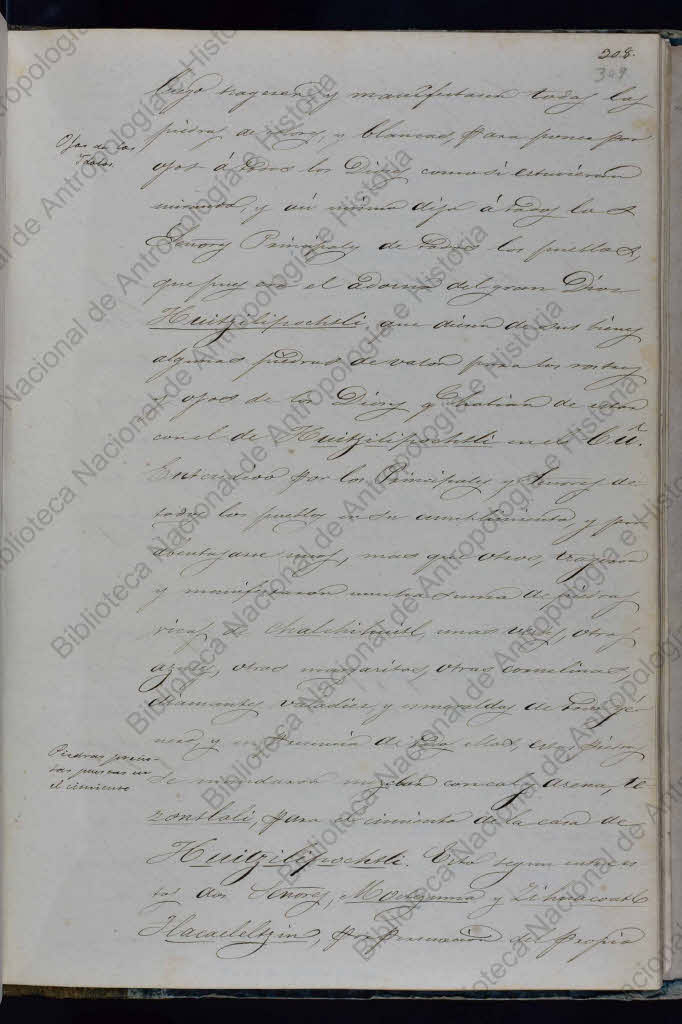 208.
309
luego trageron y manifestaron todas las
piedras de rios, y blancas, para poner por
Ojos de los
Idolos.
ojos á todos los Dioses como si estuvieran
mirando, y asi mismo dijo á todos los
Señores Principales de todos los pueblos,
que pues era el adorno del gran Dios
Huitzilipochtli, que diesen de sus bienes
algunas piedras de valor para los rostros
y ojos de los Dioses y habian de estar
con el de Huitzilipochtli en el Cú.
Entendido por los Principales y Señores de
todos los pueblos en su cumplimiento y por
aventajarse unos, mas que otros, trageron
y manifestaron mucha suma de piedras
ricas de chalchihuitl, unas verdes, otras
azules, otros margaritas, otras cornelinas,
diamantes y esmeraldas de todo gé-
nero, y en presencia de todos ellos, estas piedras
Piedras precio-
sas puestas en
el cimiento
se mandaron mezclar con cal y arena, te
zontlali, para el cimiento de la casa de
Huitzilipochtli. Esto segun entre es-
tos dos Señores, Moctezuma y Zihuacoatl
Tlacaeleltzin, por persuacion del propio
Biblioteca Nacional de Antropología e Historia